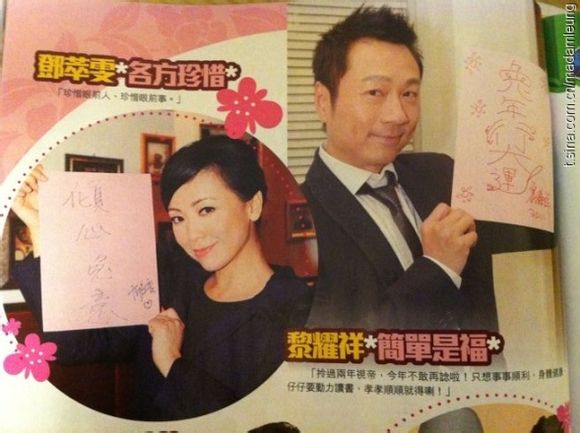 鄧萃雯*各方珍惜*
「珍惜眼前人、珍惜眼前事。」
傾心兔意
兔年
行大運
黎耀祥*簡單是福*
「拎過兩年視帝，今年不敢再諗啦！只想事事順利，身體健康
仔仔要勤力讀書、孝孝順順就得喇！」
t.sina.com.cn/madamleung